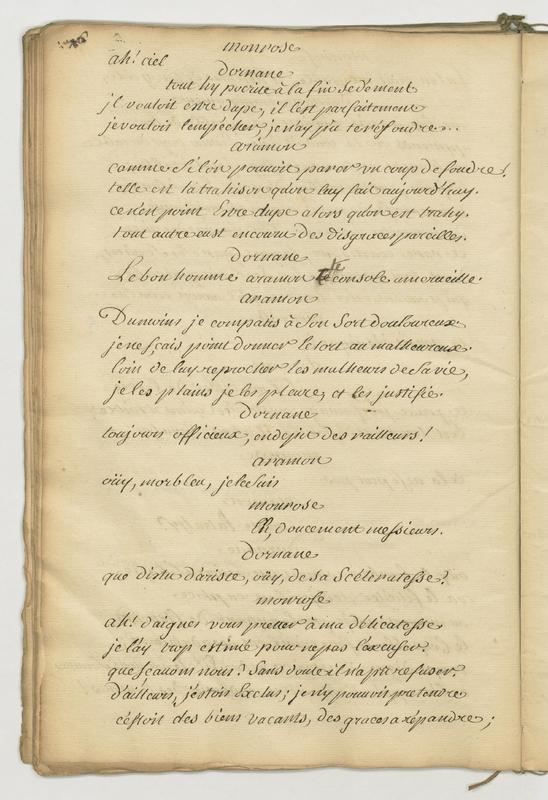 monrose
ah! ciel
dornane
tout hypocrite à la fin se dement
jl vouloit estre dupe, il l'est parfaitement
je voulois l'empêcher, je n'ay pû te résoudre...
aramon
comme si l'on pouvoit parer un coup de foudre!
telle est la trahison qu'on luy fait aujourd'huy.
ce n'est point Estre dupe alors qu'on est trahy.
tout autre eust encouru des disgraces pareilles.
dornane
Le bon homme aramon te console a merveille.
aramon
Du moins je compatis à son sort douloureux.
je ne sçais point donner le tort au malheureux.
loin de luy reprocher les malheurs de sa vie,
je les plains je les pleure, et les justifie.
dornane
toujours officieux, en dépit des railleurs!
aramon
oüy, morbleu, je le suis
monrose
Eh, doucement messieurs.
dornane
que dis tu d'ariste, oüy, de sa scéleratesse?
monrose
ah! daignés vous prester à ma délicatesse
je l'ay trop estimé pour ne pas l'excuser.
que sçavons nous? Sans doute il n'a pû refuser.
d'ailleurs, j'éstois Exclus; je n'y pouvois pretendre
c'éstoit des biens vacants, des graces a répandre;